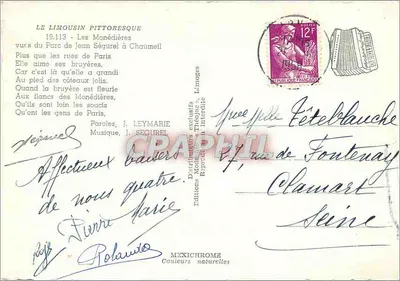 LE LIMOUSIN PITTORESQUE
19.113 - Les Monédières
vues du Parc de Jean Ségurel à Chaumeil
Plus que les rues de Paris
Elle aime ses bruyères,
Car c'est là qu'elle a grandi
Au pied des côteaux jolis.
Quand la bruyère est fleurie
Aux flancs des Monédières,
Qu'ils sont loin les soucis
Qu'ont les gens de Paris,
Paroles, J. LEYMARIE
Musique, J. SEGUREL
Affectueux baisers
de nous quatre.
Pierre Marie
Rolande
Distribution exclusive
Limoges
12F
CPAPHIL.com
Mlle Têteblanche
27, rue de Fontenay
Clamart
Seine
MEXICHROME
Couleurs naturelles